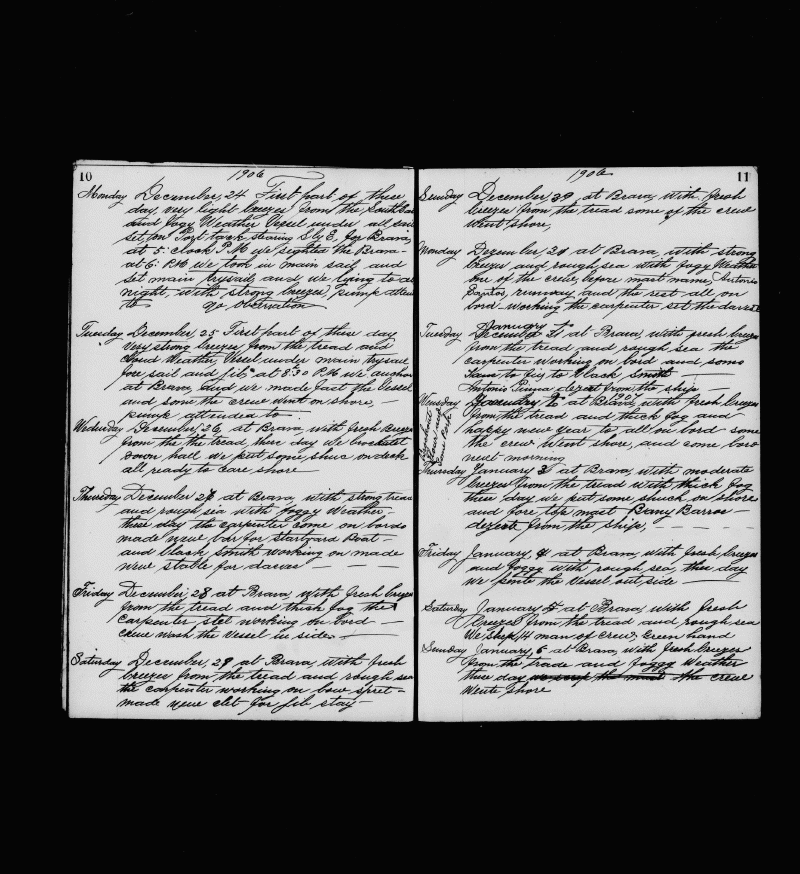 10
1906
Monday December, 24 First part of these
day, very light breezes from the
and fogy Weather Vessel under all sail
set, on Port tack stearing S by E, for Brava,
at 5: clock P.M we sighted the Brava
at 6: P.M we took in main sail, and
set main trysail, and we laying to all
night, with strong breezes, pump attend
to go obstruation
Tuesday December, 25 First part of these day
very strong breezes from the tread and
cloud Weather, Vessel under main trysail
fore sail and jib, at 8:30 P.M we anchor
at Brava, and we made fast the Vessel
and some the crew went on shore, —
pump attended to
Wednesday December, 26, at Brava, with fresh Breezes
from the the tread, there day we
down hall we put some shuc on deck
all ready to care shore
Thursday December 27 at Brava, with strong tread
and rough sea with foggy Weather —
these day the carpenter come on bord
made new bar for Startyard Boat —
and black smith working on made
new stable for — — —
Friday December, 28 at Brava with fresh breezes
from the tread and thick fog the
carpenter stel working on bord —
crew wash the Vessel in side —
Saturday December, 29 at Brava, with fresh
breezes from the tread and rough sea
the carpenter working on bow spret —
made new clet for jib stay —
11
1906
Sunday December 30 at Brava, with fresh
breezes from the tread some of the crew
went shore,
Monday December, 31 at Brava, with strong
breezes and rough sea with fogy Weather
one of the crew, before mast name, Antonio
runway, and the rest all on
bord — working the carpenter set the
January
Tuesday December 1, at Brava, with fresh breezes
from the tread and rough sea the
carpenter working on bord and some
to fig to black smith —
Antonio desert from the ship —
1907
Wensday January 2 at Brava, with fresh breezes
from the tread and thick fog and
happy new year to all on bord — some
the crew went shore, and come bord
next morning
Thursday January 3 at Brava, with moderate
breezes from the tread with thick fog
these day we put some shuck on shore
and fore top mast Barros —
desert from the ship, — — —
Friday January, 4 at Brava, with fresh, breezes
and foggy with rough sea, these day
we pente the Vessel out side —
Saturday January 5 at Brava, with fresh
breezes from the tread and rough sea
We ship, 14 man of crew, Green hand
Sunday January, 6 at Brava, with fresh breezes
from the trade and foggy Weather
these day we scrap the mast the crew
Went shore